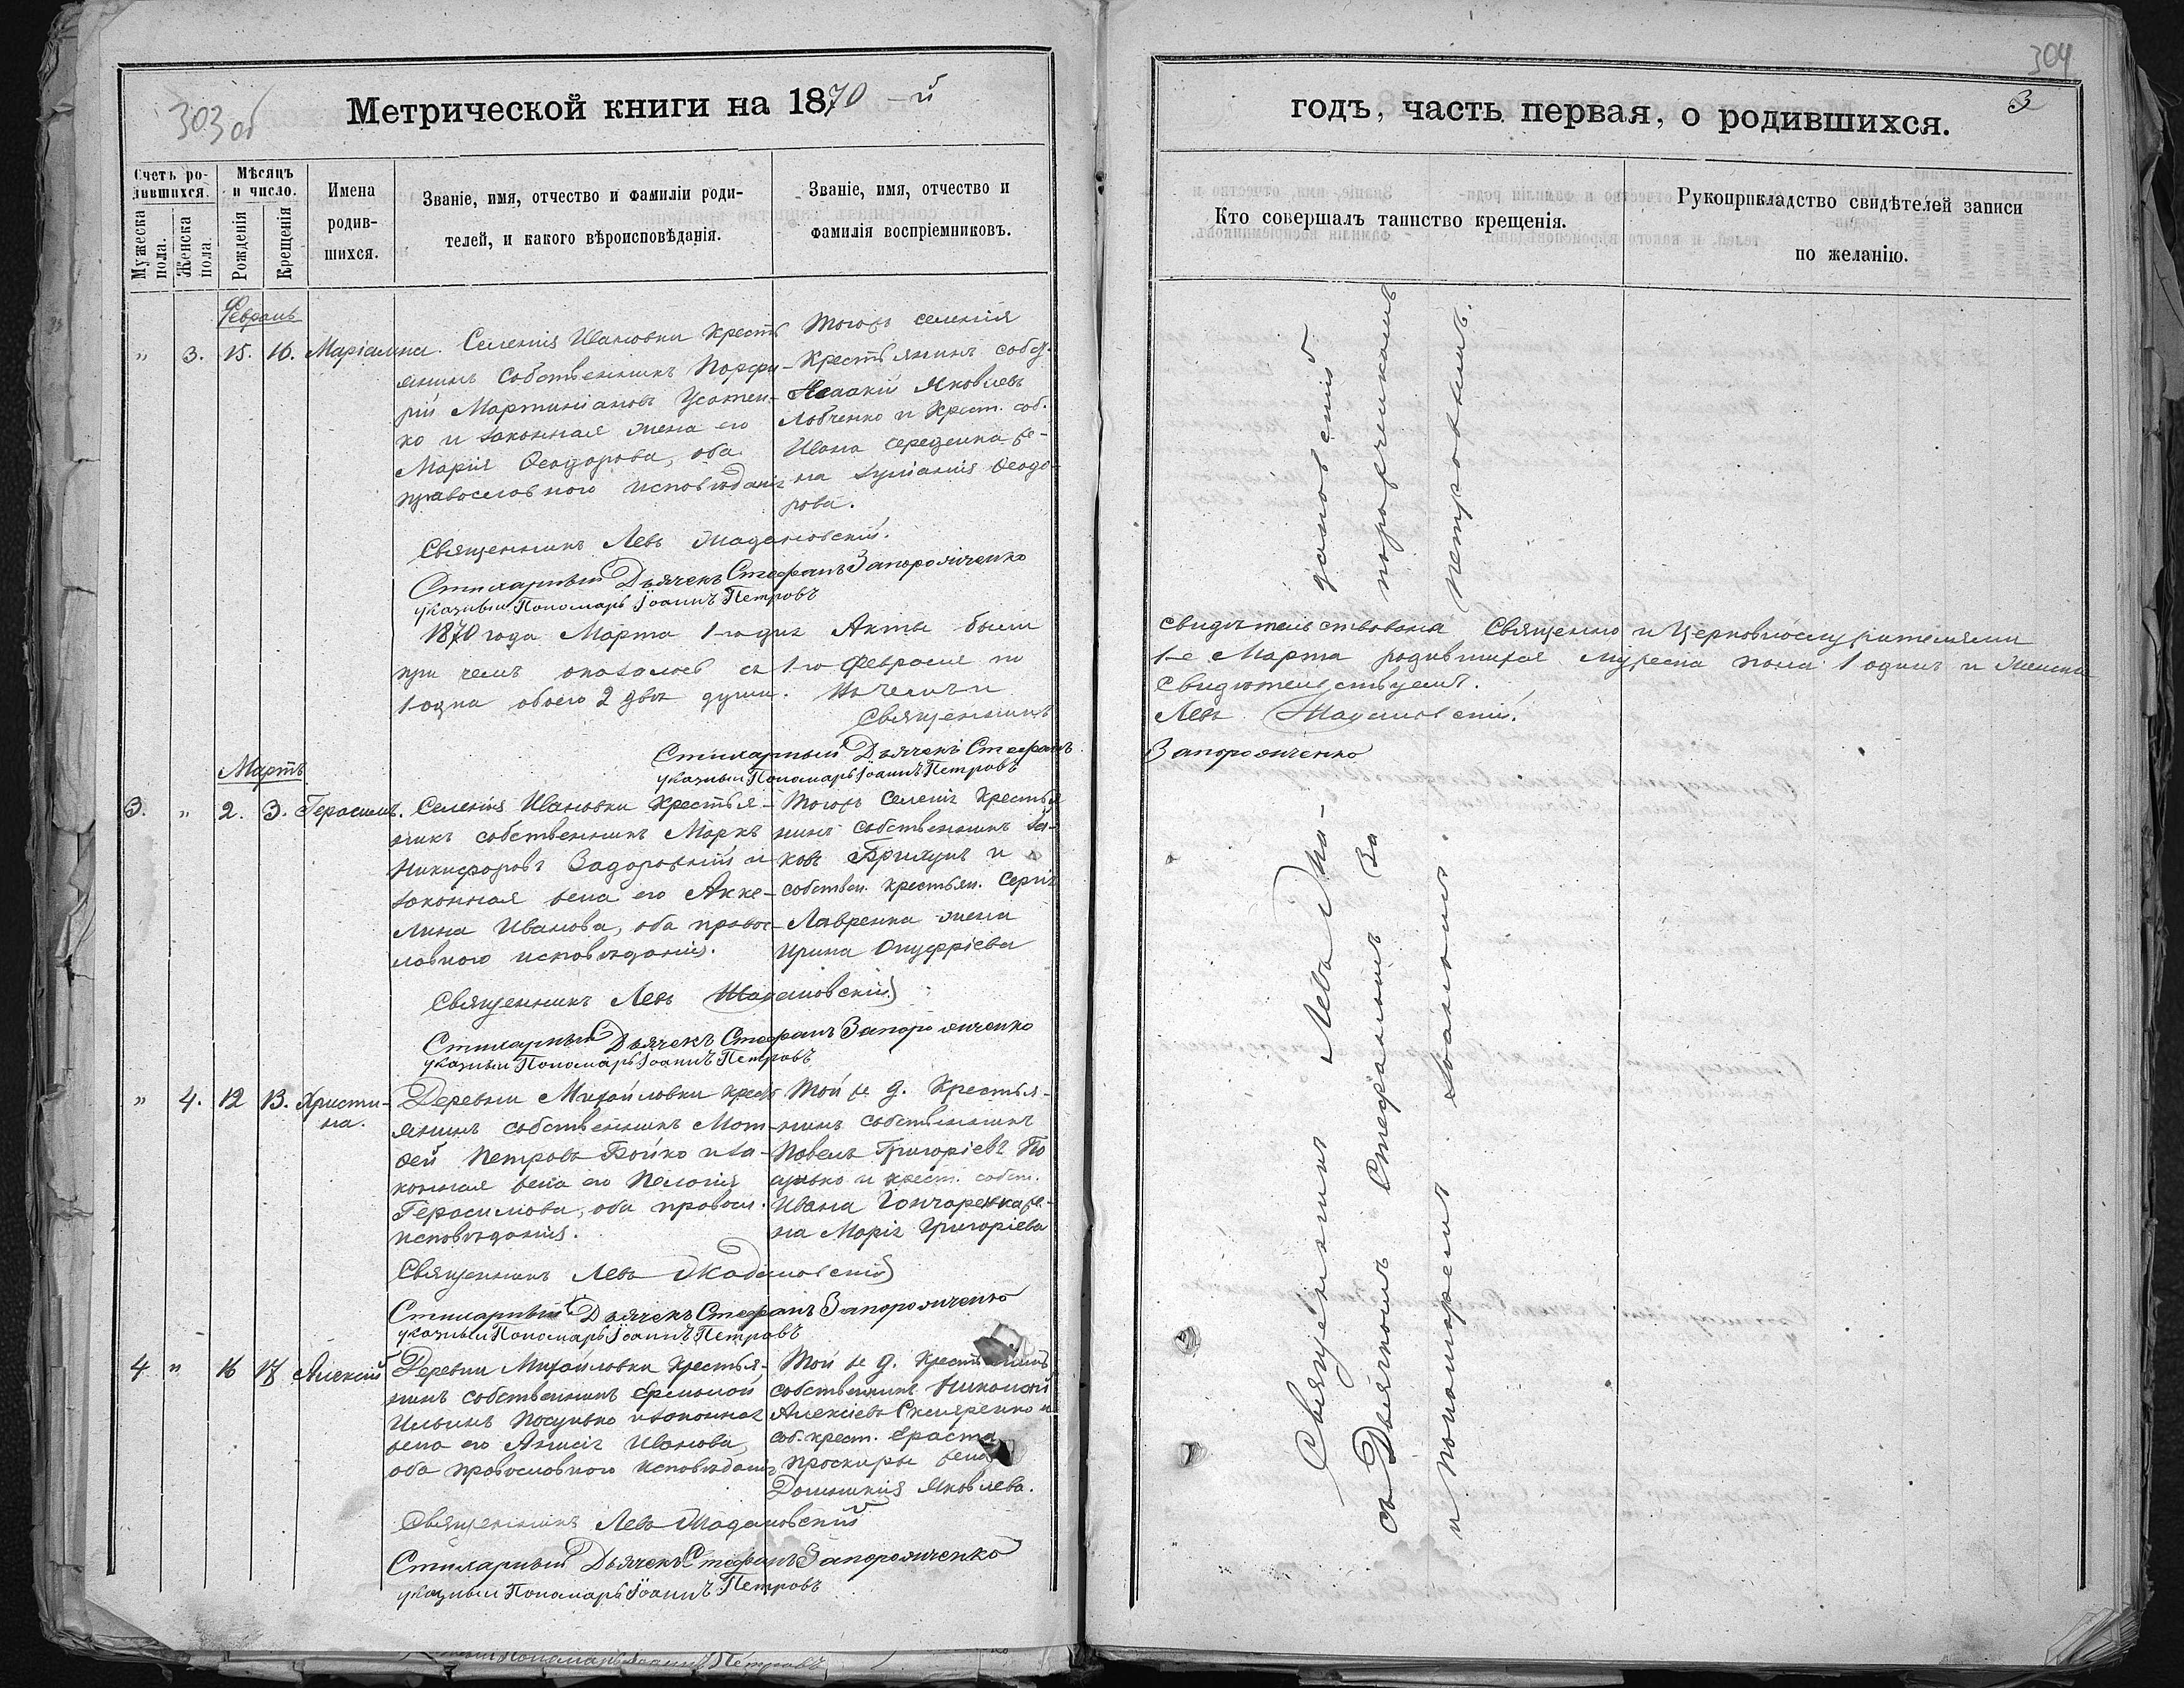 303 об
Метрической книги на 1870-й
Счетъ ро-
дившихся.
Мѣсяцъ
и число.
Мужеска
пола.
Женска
пола.
Рожденія
Крещенія
Имена
родив-
шихся.
Званіе, имя, отчество и фамиліи роди-
телей, и какого вѣроисповѣданія.
Званіе, имя, отчество и
фамилія воспріемниковъ.
Февраль
" 3. 15. 16. Маріамна.
Селенія Ивановки Кресть
янинъ собственникъ Порфи-
рій Мартиніановъ Усатен-
ко и законная жена его
Марія Ѳеодорова, оба
православного исповѣданія
Тогожъ селенія
Крестьянинъ собст.
Исаакій Яковлевъ
Ловченко и Крест. соб.
Ивана Середенка же-
на Іуліанія Ѳеодо-
рова.
Священникъ Левъ Жадановскій.
Стихарный Дьячекъ Стефанъ Запорожченко
указный Пономарь Іоаннъ Петровъ
1870 года Марта 1-го дня Акты были
при чемъ оказалось съ 1-го Февраля по
1 одна обоего 2 двѣ души. Въ чемъ и
Священникъ
Стихарный Дьячекъ Стефанъ
указный Пономарь Іоаннъ Петровъ
Мартъ
3. " 2. 3. Герасимъ.
Селенія Ивановки Крестья-
нинъ собственникъ Маркъ
Никифоровъ Задорожній и
законная жена его Аки-
лина Иванова, оба правос-
лавного исповѣданія.
Тогожъ Селенія Крестья
нинъ собственникъ Іа-
ковъ Брихунъ и
собствен. крестьян. Сергія
Лавренка жена
Ирина Онуфріева
Священникъ Левъ Жадановскій
Стихарный Дьячекъ Стефанъ Запорожченко
указный Пономарь Іоаннъ Петровъ
" 4. 12 13. Христи-
на.
Деревни Михайловки крест
янинъ собственникъ Мат-
ѳей Петровъ Бойко и за-
конная жена его Пелагія
Герасимова, оба правосл.
исповѣданія.
Той же д. Крестья-
нинъ собственникъ
Павелъ Григоріевъ По
сунько и крест. собст.
Ивана Гончаренка же-
на Марія Григоріева
Священникъ Левъ Жадановскій
Стихарный Дьячекъ Стефанъ Запорожченко
указный Пономарь Іоаннъ Петровъ
4 " 16 18 Алексій
Деревни Михайловки Крестья-
нинъ собственникъ Ермолай
Ильинъ Посунько и законная
жена его Анисія Иванова,
оба православного исповѣданія
Той же д. Крестьянинъ
собственникъ Николай
Алексіевъ Скляренко и
соб. крест. Ераста
Проскуры жена
Домникія Яковлева.
Священникъ Левъ Жадановскій
Стихарный Дьячекъ Стефанъ Запорожченко
указный Пономарь Іоаннъ Петровъ
304
3
годъ, часть первая, о родившихся.
Кто совершалъ таинство крещенія.
Рукоприкладство свидѣтелей записи
по желанію.
свидѣтельствованы Священно и Церковнослужителями
1-е Марта родившихся мужеска пола 1 одинъ и женска
свидѣтельствуемъ.
Левъ Жадановскій.
Запорожченко
Священникъ Левъ Жа-
дановскій
съ Дьячкомъ Стефаномъ За
порожченкомъ
и пономаремъ Іоанномъ
Петровымъ.